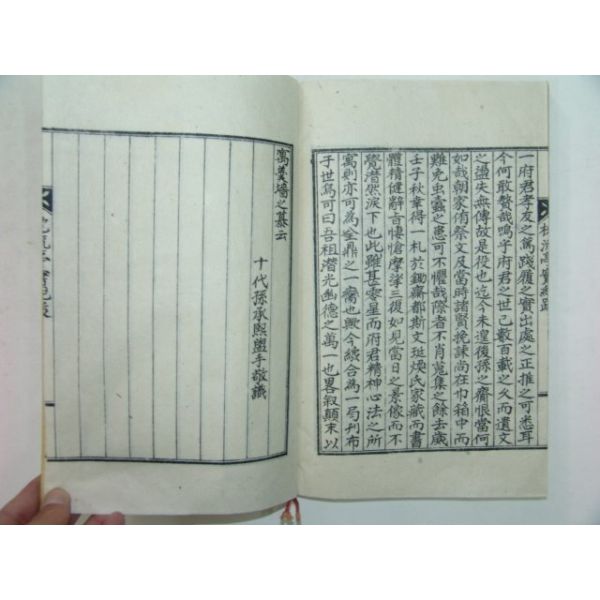 一府君孝友之篤踐履之實出處之正推之可悉耳
今何敢贅哉嗚乎府君之世已數百載之久而遺文
之盪失無傳故是役也迄今未遑後孫之齎恨當何
如哉朝家侑祭文及當時諸賢挽誄尚在巾箱中而
難免虫蠹之患可不懼哉際者不肖蒐集之餘去歲
壬子秋幸得一札於鋤齋都斯文珽煐氏家藏而書
體精健辭旨悽愴摩挲三復如見當日之景像而不
覺潸然淚下也此雖甚零星而府君精神心法之所
寓則亦可為全鼎之一臠也歟今續合為一局刊布
于世焉可曰吾祖潛光幽德之萬一也畧叙顛末以
寓羹墻之慕云
十代孫承熙盥手敬識